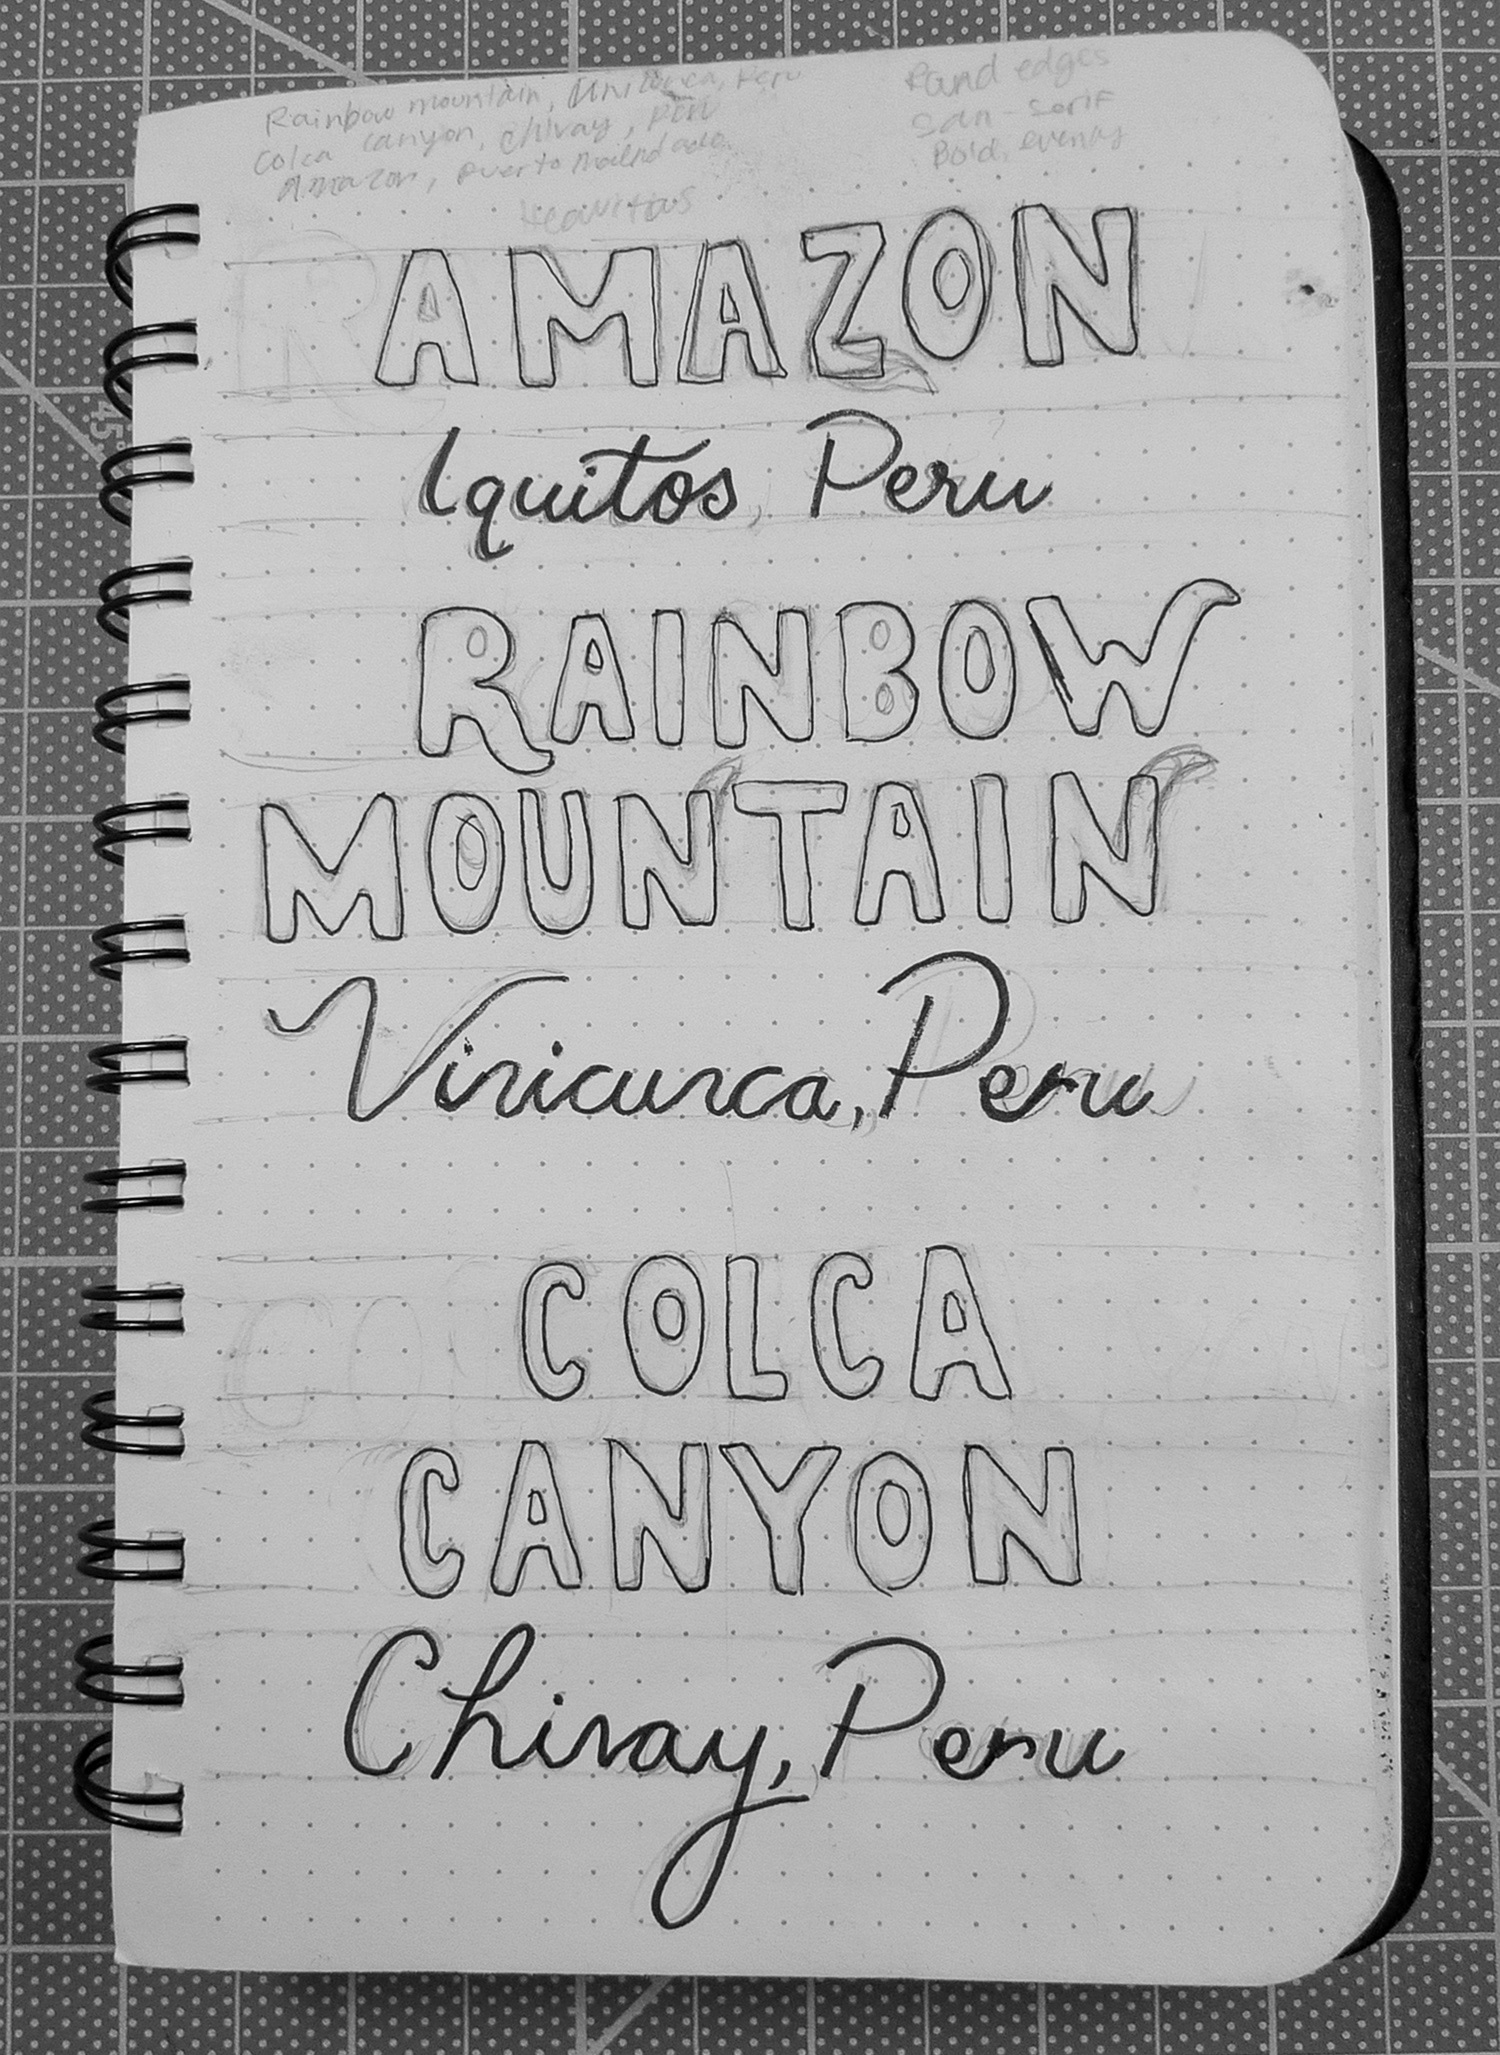 Rainbow mountain, Peru
Colca canyon, Chivay, Peru
Amazon, puerto
Round edges
San-serif
Bold, evenly
AMAZON
Iquitos, Peru
RAINBOW
MOUNTAIN
Vinicunca, Peru
COLCA
CANYON
Chivay, Peru
45°